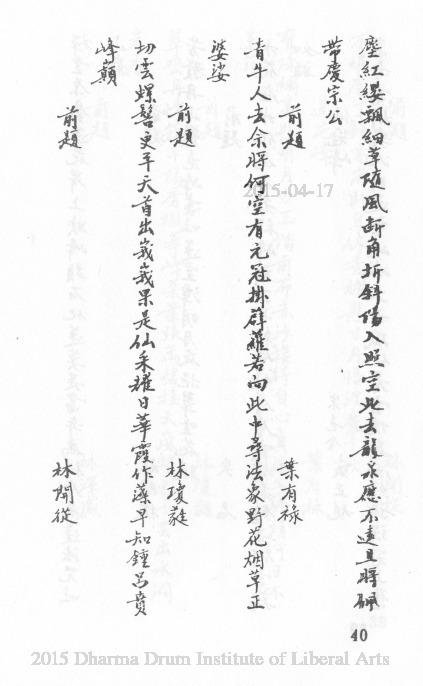 塵紅纓飄細草隨風斷角折斜陽入照空此去龍泉應不遠且將佩
帶慶宗公
前題 葉有祿
青牛人去余將何空有元冠掛薜蘿若向此中尋法象野花烟草正
婆娑
前題 林瓊蕤
切雲螺髻更平天首出峩峩果是仙禾耀日華霞作藻早知鍾呂賁
峰巔
前題 林開從
2015-04-17
40
2015 Dharma Drum Institute of Liberal Arts